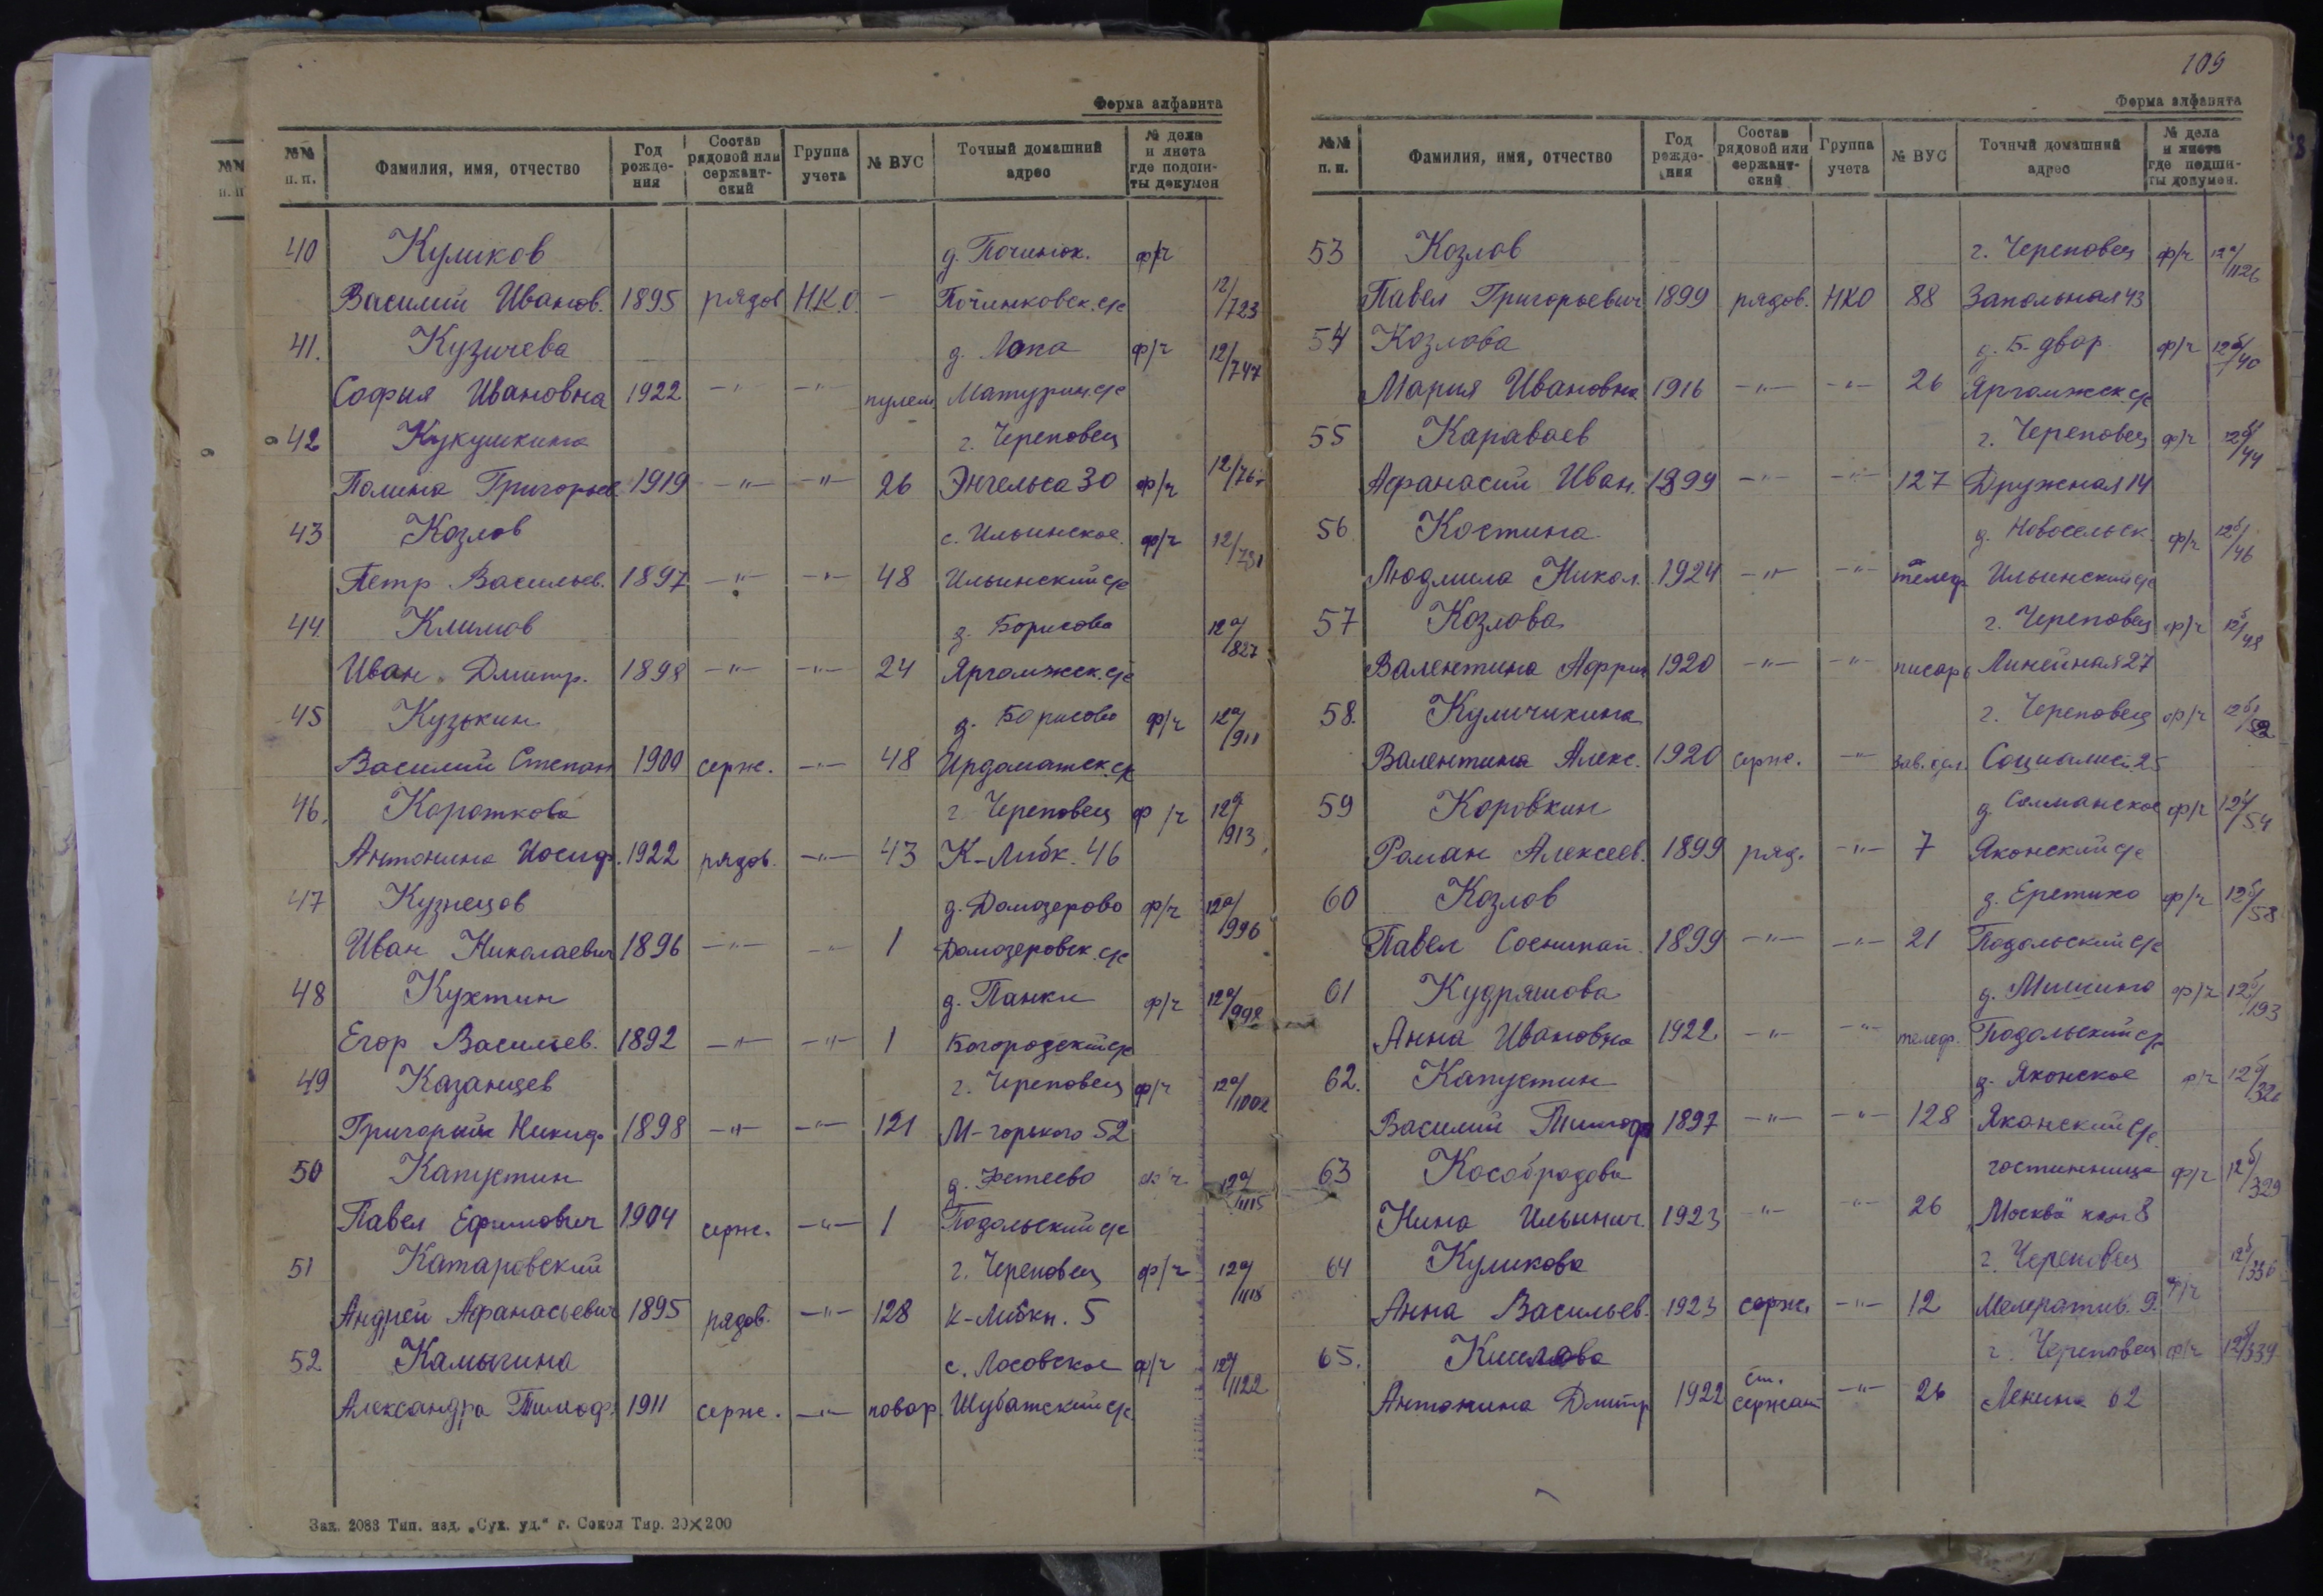 Форма алфавита
№№ п.п. Фамилия, имя, отчество Год рожде-ния Состав рядовой или сержант-ский Группа учета № ВУС Точный домашний адрес № дела и листа где подши-ты докумен
40 Куликов д. Починок. ф/ч
Василий Иванов. 1895 рядов Н.К.О. - Починковск. с/с 12/723
41. Кузичева д. Лопа ф/ч 12/747
София Ивановна 1922 -"- -"- пулем Матурин. с/с
42 Кукушкина г. Череповец
Полина Григорьев 1919 -"- -"- 26 Энгельса 30 ф/ч 12/767
43 Козлов с. Ильинское ф/ч 12/781
Петр Васильев. 1897 -"- -"- 48 Ильинский с/с
44. Климов д. Борисово 12а/827
Иван Дмитр. 1898 -"- -"- 24 Яргомжск. с/с
45 Кузькин д. Борисово ф/ч 12а/911
Василий Степан 1900 серж. -"- 48 Ирдоматск. с/с
46. Короткова г. Череповец ф/ч 12а/913
Антонина Иосиф. 1922 рядов. -"- 43 К-Либк. 46
47 Кузнецов д. Домозерово ф/ч 12а/996
Иван Николаевич 1896 -"- -"- 1 Домозеровск. с/с
48 Кухтин д. Панки ф/ч 12а/998
Егор Васильев. 1892 -"- -"- 1 Богородский с/с
49 Казанцев г. Череповец ф/ч 12а/1002
Григорий Никиф. 1898 -"- -"- 121 М-горького 52
50 Капустин д. Фетеево ф/ч 12а/1115
Павел Ефимович 1904 серж. -"- 1 Подольский с/с
51 Катаровский г. Череповец ф/ч 12а/1118
Андрей Афанасьевич 1895 рядов. -"- 128 К-Либкн. 5
52 Камыгина с. Лосовское ф/ч 12а/1122
Александра Тимоф. 1911 серж. -"- повар. Шубатский с/с
Зак. 2083 Тип. изд. „Сух. уд." г. Сокол Тир. 20×200
109
Форма алфавита
№№ п.п. Фамилия, имя, отчество Год рожде-ния Состав рядовой или сержант-ский Группа учета № ВУС Точный домашний адрес № дела и листа где подши-ты докумен.
53 Козлов г. Череповец ф/ч 12а/1126
Павел Григорьевич 1899 рядов. НКО 88 Запольная 43
54 Козлова д. Б. двор ф/ч 12б/40
Мария Ивановна 1916 -"- -"- 26 Яргомжск. с/с
55 Караваев г. Череповец ф/ч 12б/44
Афанасий Иван. 1899 -"- -"- 127 Дружная 14
56 Костина д. Новосельск. ф/ч 12б/46
Людмила Никол. 1924 -"- -"- телеф Ильинский с/с
57 Козлова г. Череповец ф/ч 12б/48
Валентина Африк 1920 -"- -"- писарь Линейная 27
58. Куличихина г. Череповец ф/ч 12б/52
Валентина Алекс. 1920 серж. -"- Социалист. 25
59 Коровкин д. Селманское ф/ч 12б/54
Роман Алексеев. 1899 ряд. -"- 7 Яконский с/с
60 Козлов д. Еретино ф/ч 12б/58
Павел 1899 -"- -"- 21 Подольский с/с
61 Кудряшова д. Мишино ф/ч 12б/193
Анна Ивановна 1922 -"- -"- телеф. Подольский с/с
62. Капустин д. Яконское ф/ч 12б/326
Василий Тимоф 1897 -"- -"- 128 Яконский с/с
63 Кособрадова гостинница ф/ч 12б/329
Нина Ильинич. 1923 -"- -"- 26 „Москва" ком 8
64 Куликова г. Череповец 12б/336
Анна Васильев. 1923 серж. -"- 12 Мелератив. 9 ф/ч
65. Киселева г. Череповец ф/ч 12б/339
Антонина Дмитр 1922 ст. сержант -"- 26 Ленина 62